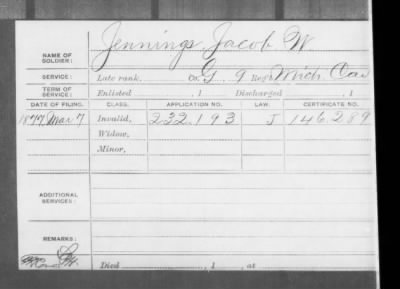 NAME OF SOLDIER: Jennings, Jacob W.
SERVICE: Late rank, Co. G, 9 Reg't Mich. Cav
TERM OF SERVICE: Enlisted , 1 Discharged , 1
DATE OF FILING. CLASS. APPLICATION NO. LAW. CERTIFICATE NO.
1877, Mar 7 Invalid, 232.193 J 146.289
Widow,
Minor,
ADDITIONAL SERVICES:
REMARKS:
Died , 1 , at